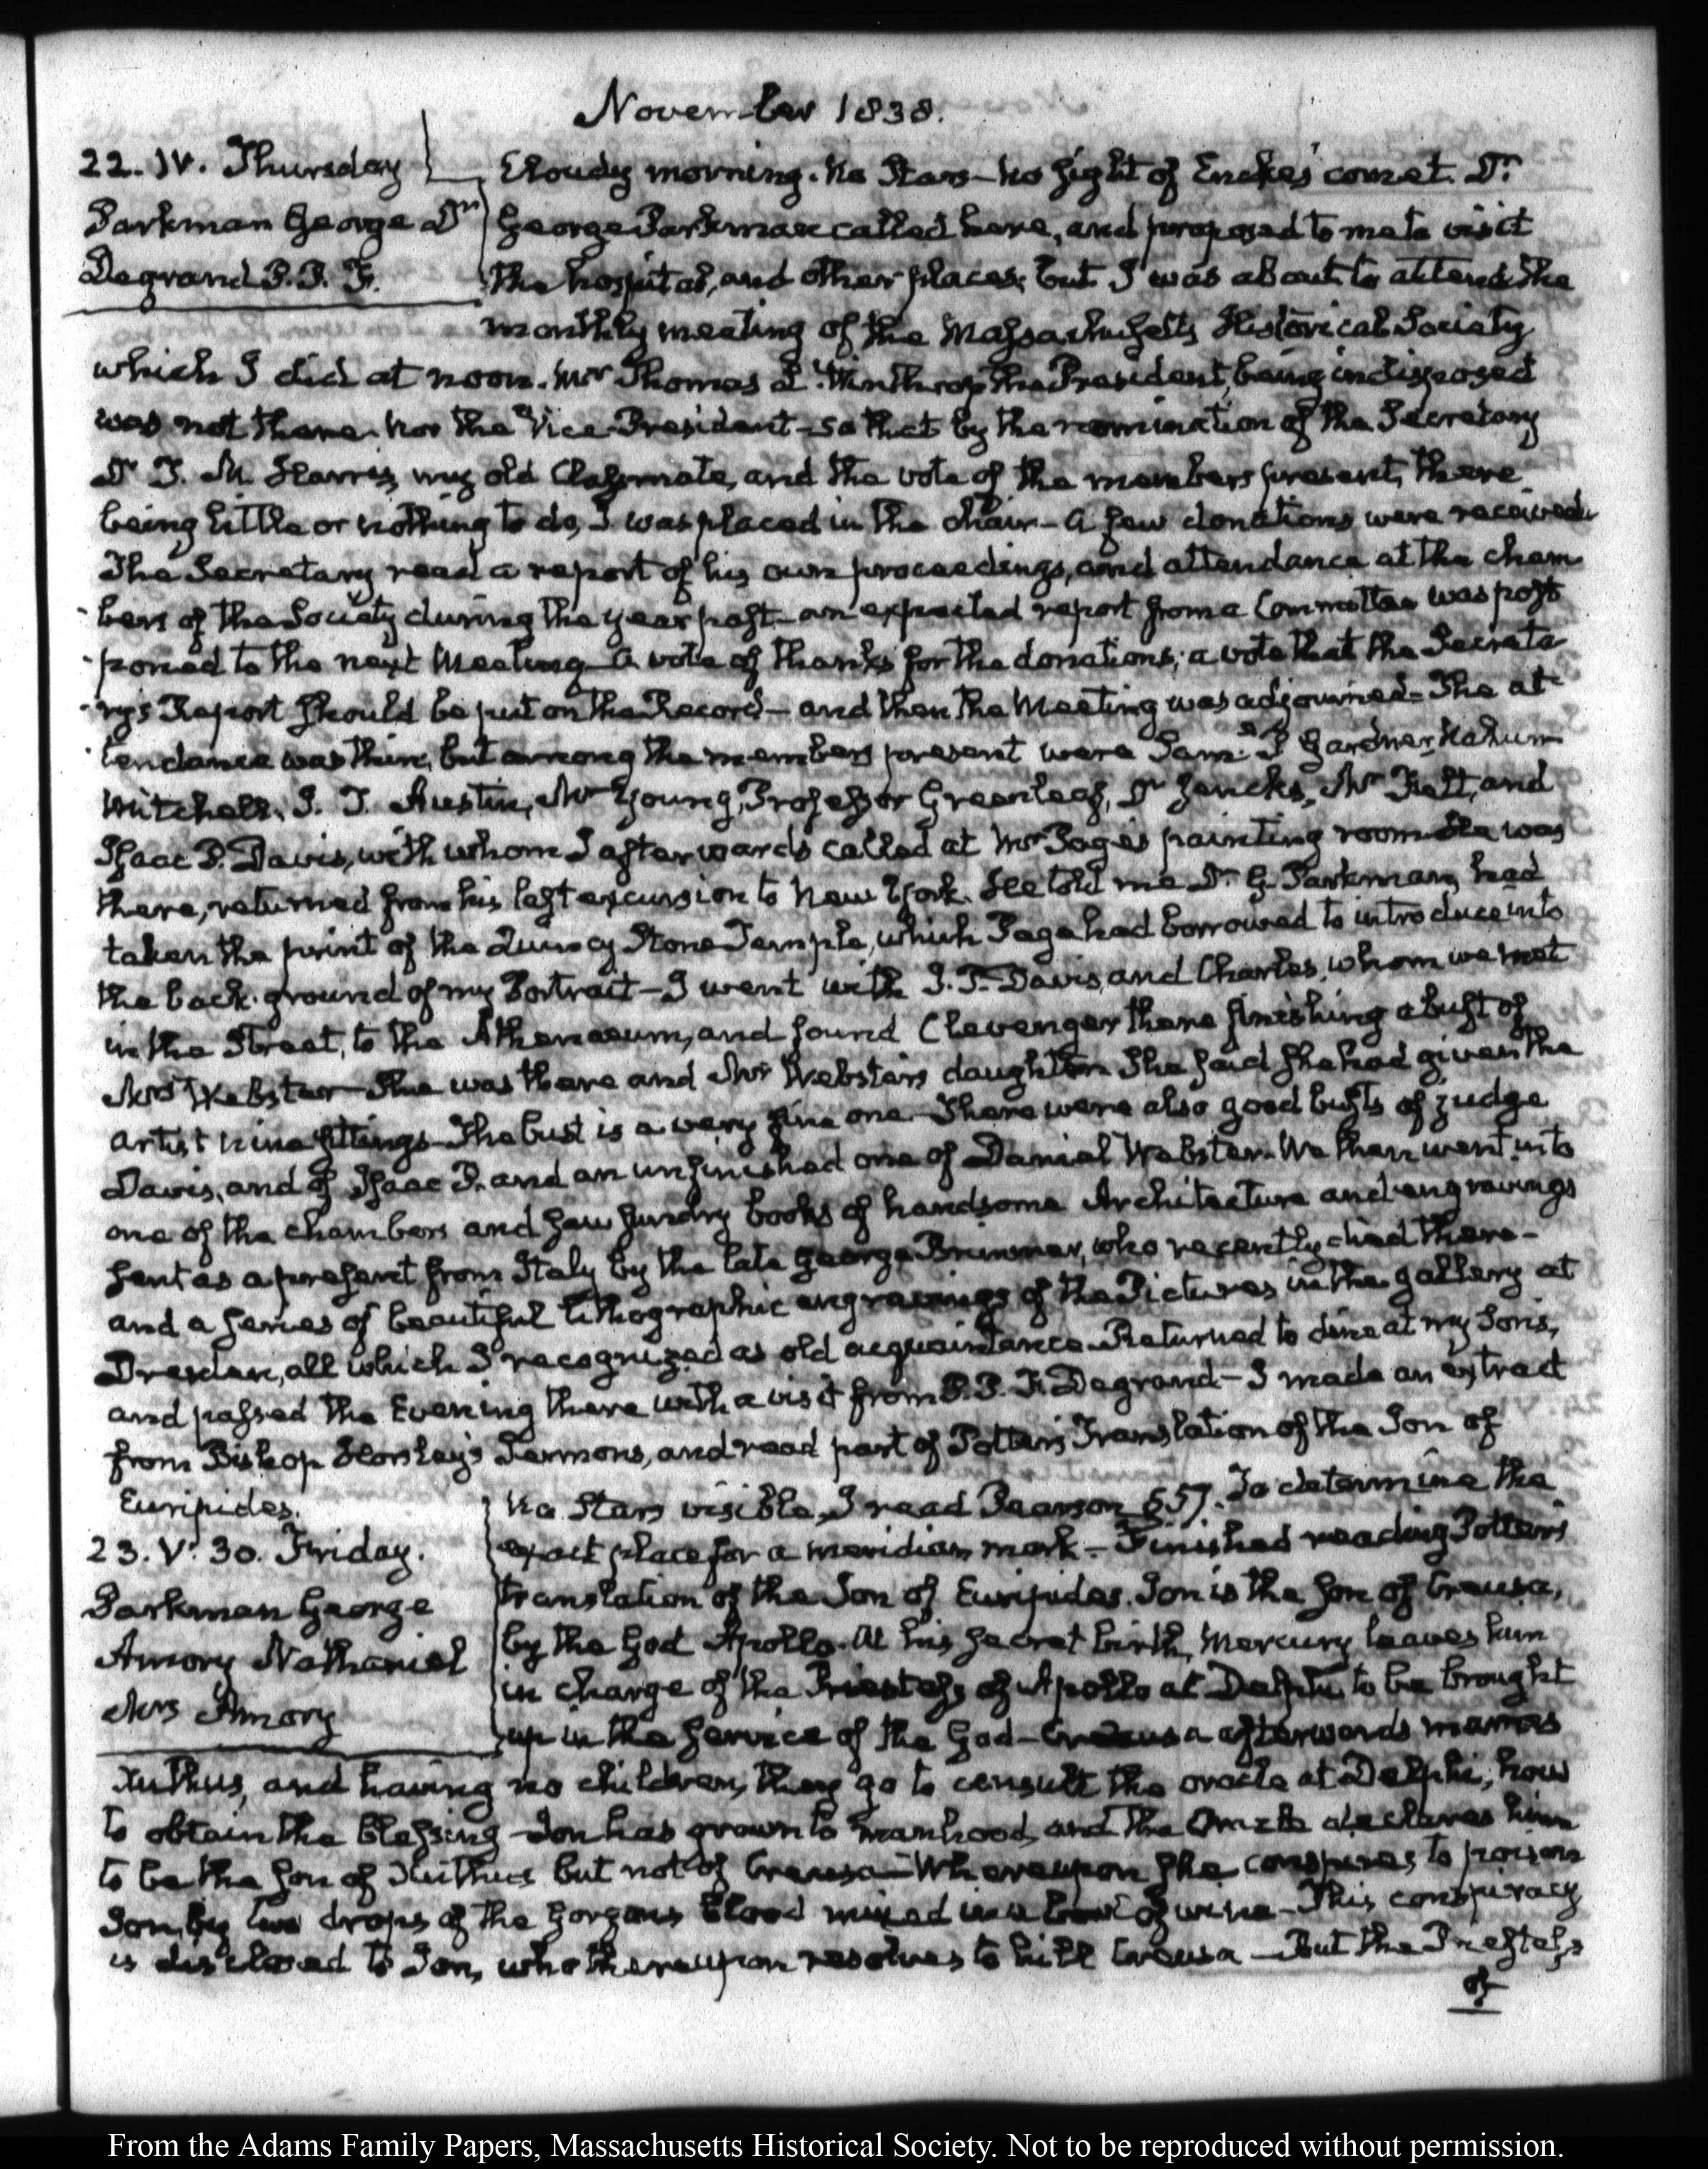 November 1838.
22. IV. Thursday
Parkman George Dr
Degrand P. P. F.
Cloudy morning. No Stars – No sight of Encke's comet. Dr.
George Parkman called here, and proposed to me to visit
the hospital, and other places; but I was about to attend the
monthly meeting of the Massachusetts Historical Society
which I did at noon. Mr Thomas L. Winthrop the President, being indisposed
was not there. Nor the Vice-President – so that by the nomination of the Secretary
Dr T. M. Harris, my old Classmate, and the vote of the members present, there
being little or nothing to do, I was placed in the chair – A few donations were received.
The Secretary read a report of his own proceedings, and attendance at the cham-
bers of the Society during the year past – an expected report from a Committee was post
poned to the next Meeting – A vote of thanks for the donations; a vote that the Secreta
ry's Report should be put on the Record – and then the Meeting was adjourned – The at
tendance was thin, but among the members present were Saml. P. Gardner, Nahum
Mitchell, J. T. Austin, Mr Young, Professor Greenleaf, Dr Jencks, Mr Felt, and
Isaac P. Davis, with whom I afterwards called at Mr Page's painting room – He was
there, returned from his last excursion to New York. He told me Dr. G. Parkman had
taken the print of the Quincy Stone Temple, which Page had borrowed to introduce into
the back-ground of my Portrait – I went with I. P. Davis, and Charles, whom we met
in the Street, to the Athenaeum, and found Clevenger there finishing a bust of
Mrs Webster – She was there and Mr Webster's daughter. She said she had given the
artist nine sittings – The bust is a very fine one – There were also good busts of Judge
Davis, and of Isaac P. and an unfinished one of Daniel Webster. We then went into
one of the chambers and saw sundry books of handsome Architecture and engravings
sent as a present from Italy by the late George Brimmer, who recently died there –
and a series of beautiful lithographic engravings of the Pictures in the gallery at
Dresden, all which I recognized as old acquaintance – Returned to dine at my Son's,
and passed the Evening there with a visit from P. P. F. Degrand – I made an extract
from Bishop Horsley's Sermons, and read part of Potter's Translation of the Ion of
Euripides.
23. V. 30. Friday.
Parkman George
Amory Nathaniel
Mrs Amory
No Stars visible, I read Pearson §57. To determine the
exact place for a meridian mark – Finished reading Potter's
translation of the Ion of Euripides. Ion is the son of Creusa,
by the God Apollo. At his secret birth, Mercury leaves him
in charge of the Priestess of Apollo at Delphi to be brought
up in the service of the God – Creusa afterwards marries
Xuthus, and having no children, they go to consult the oracle at Delphi, how
to obtain the blessing – Ion has grown to manhood, and the Oracle declares him
to be the son of Xuthus but not of Creusa – Whereupon she conspires to poison
Ion, by two drops of the Gorgons blood mixed in a bowl of wine – This conspiracy
is disclosed to Ion, who thereupon resolves to kill Creusa – But the Priestess
of
From the Adams Family Papers, Massachusetts Historical Society. Not to be reproduced without permission.